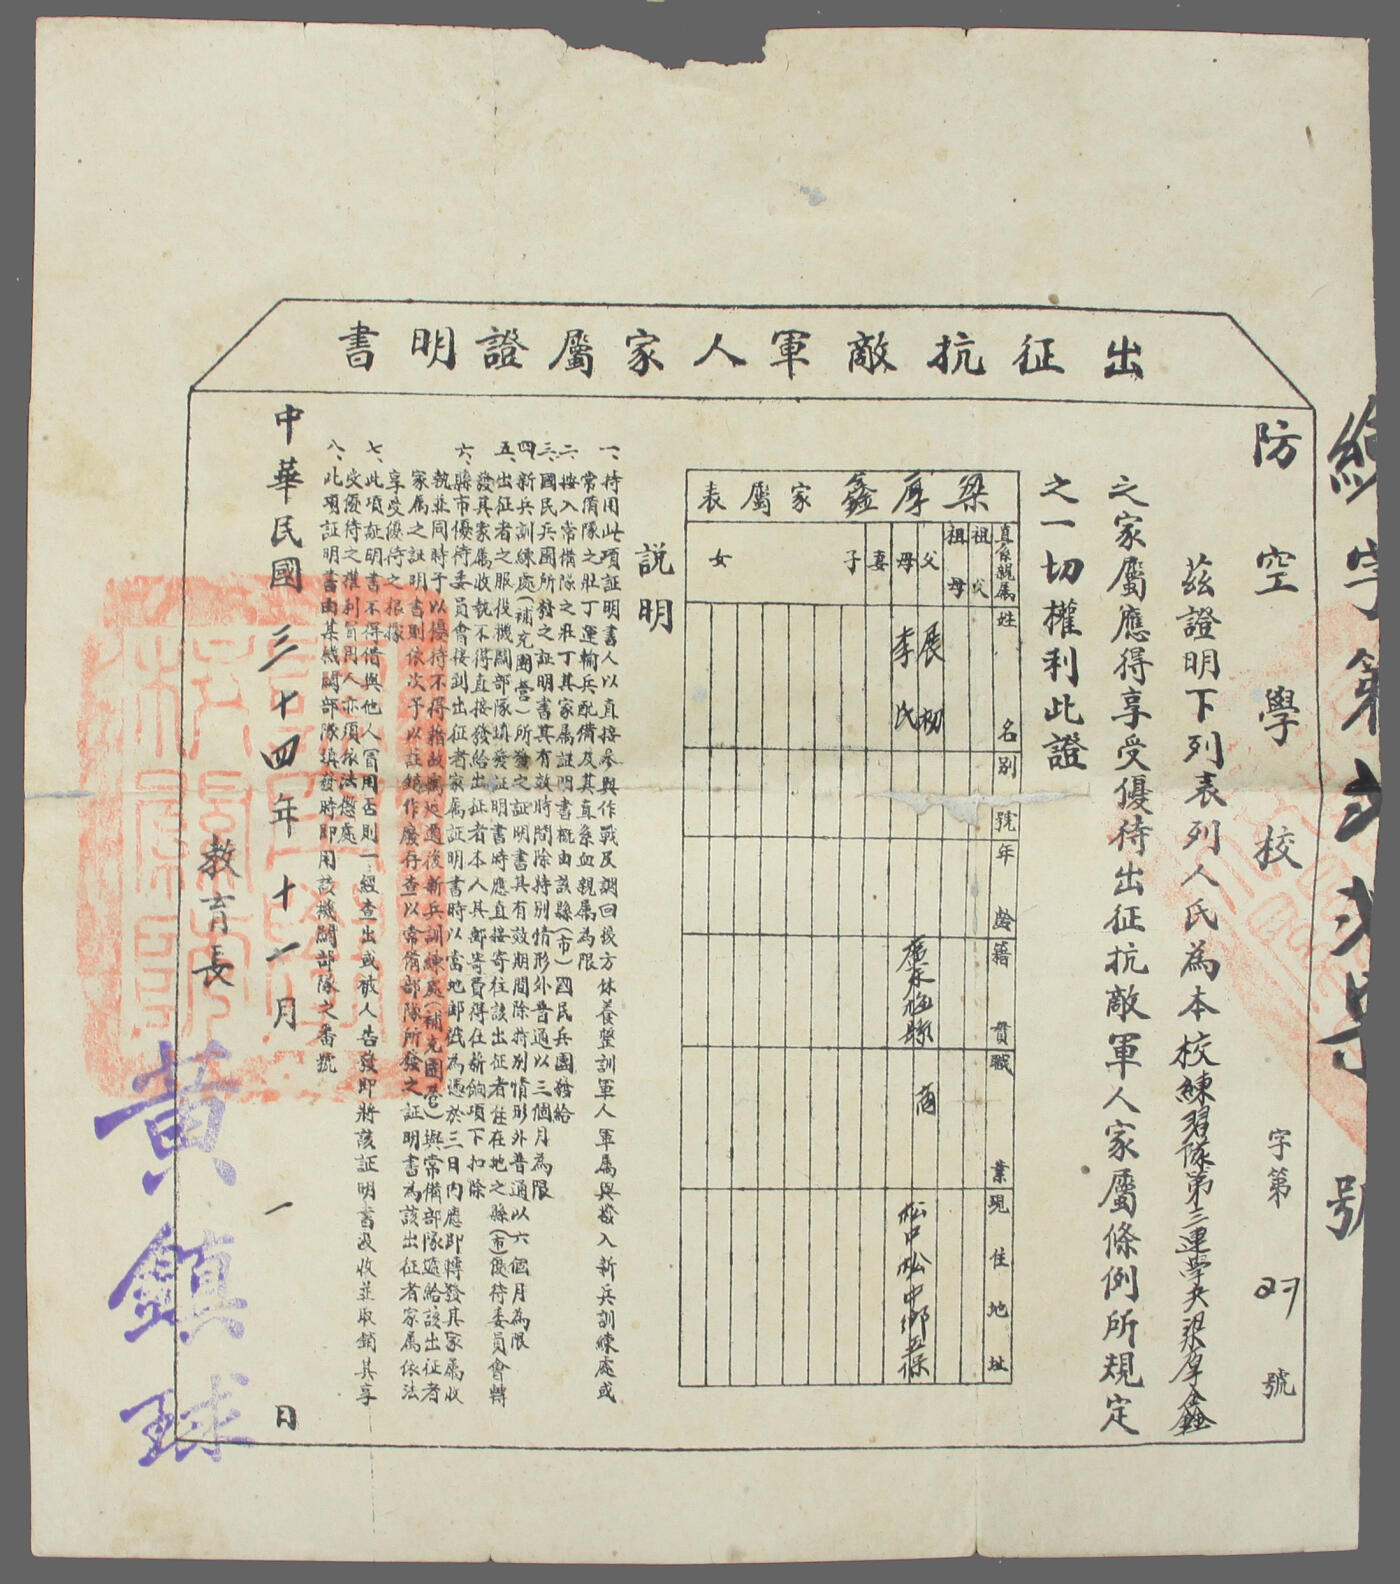 出征抗敵軍人家屬證明書
防空學校 字第 號
茲證明下列表列人民為本校練習隊第三連學兵梁厚鑫
之家屬應得享受優待出征抗敵軍人家屬條例所規定
之一切權利此證
梁厚鑫家屬表
直系親屬 姓名 別號 年齡 籍貫 職業 現住地址
祖父
祖母
父 展初 廣東梅縣 商 松中松中鄉五保
母 李氏
妻
子
女
説明
一、持用此項証明書人以直接參與作戰及調回後方休養整訓軍人軍屬與撥入新兵訓練處或
常備隊之壯丁運輸兵配備及其直系血親屬為限
二、按入常備隊之壯丁其家屬証明書概由該縣(市)國民兵團發給
三、國民兵團所發之証明書其有效時間除特別情形外普通以三個月為限
四、新兵訓練處(補充團營)所發之証明書其有效期間除特別情形外普通以六個月為限
五、出征者之服役機關部隊填發証明書時應直接寄往該出征者住在地之縣(市)優待委員會轉
發其家屬收執不得直接發給出征者本人其郵寄費得在薪餉項下扣除
六、縣市優待委員會接到出征者家屬証明書時以當地郵戳為憑於三日內應即轉發其家屬收
執並同時予以優待不得藉故厲延過後新兵訓練處(補充團營)與常備部隊適給該出征者
家屬之証明書則依次予以註銷作廢存查以常備部隊所發之証明書為該出征者家屬依法
享受優待之根據
七、此項証明書不得借與他人冒用否則一經查出或被人告發即將該証明書沒收並取銷其享
受優待之權利冒用人亦須依法懲處
八、此項証明書由某機關部隊填發時即用該機關部隊之番號
中華民國三十四年十一月一日
教育長
黃鎮球